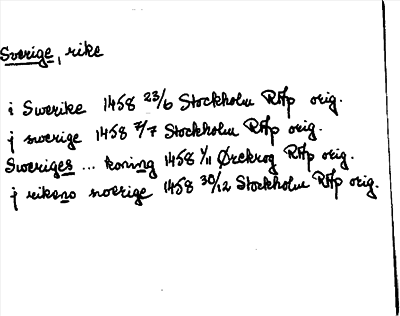 Sverige, rike
i Swerike 1458 23/6 Stockholm RAp orig.
j swerige 1458 7/7 Stockholm RAp orig.
Sweriges ... koning 1458 1/11 Örekrog RAp orig.
j rikeno swerige 1458 30/12 Stockholm RAp orig.